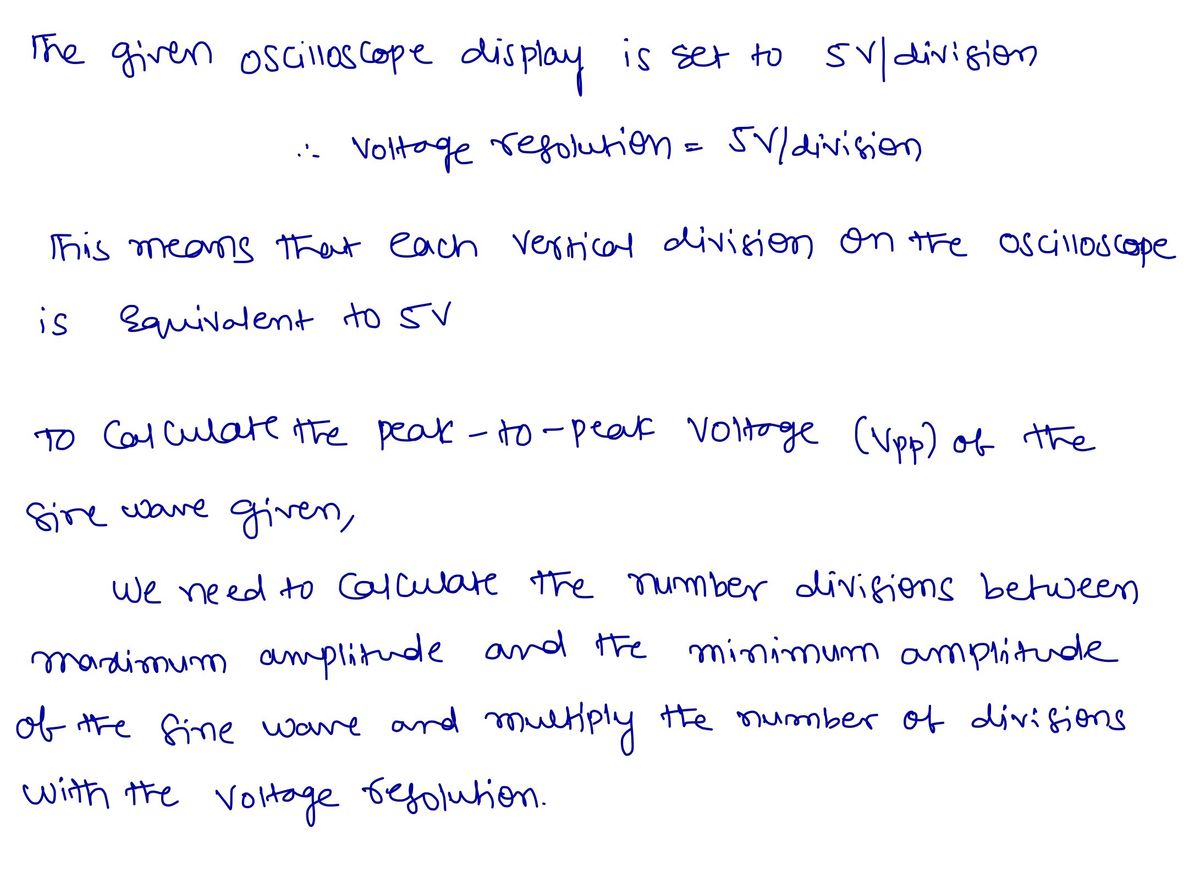 The given oscilloscope display is set to 5V/division
∴ Voltage resolution = 5V/division
This means that each vertical division on the oscilloscope
is equivalent to 5V
To calculate the peak-to-peak voltage (Vpp) of the
sine wave given,
We need to calculate the number divisions between
maximum amplitude and the minimum amplitude
of the sine wave and multiply the number of divisions
with the voltage resolution.